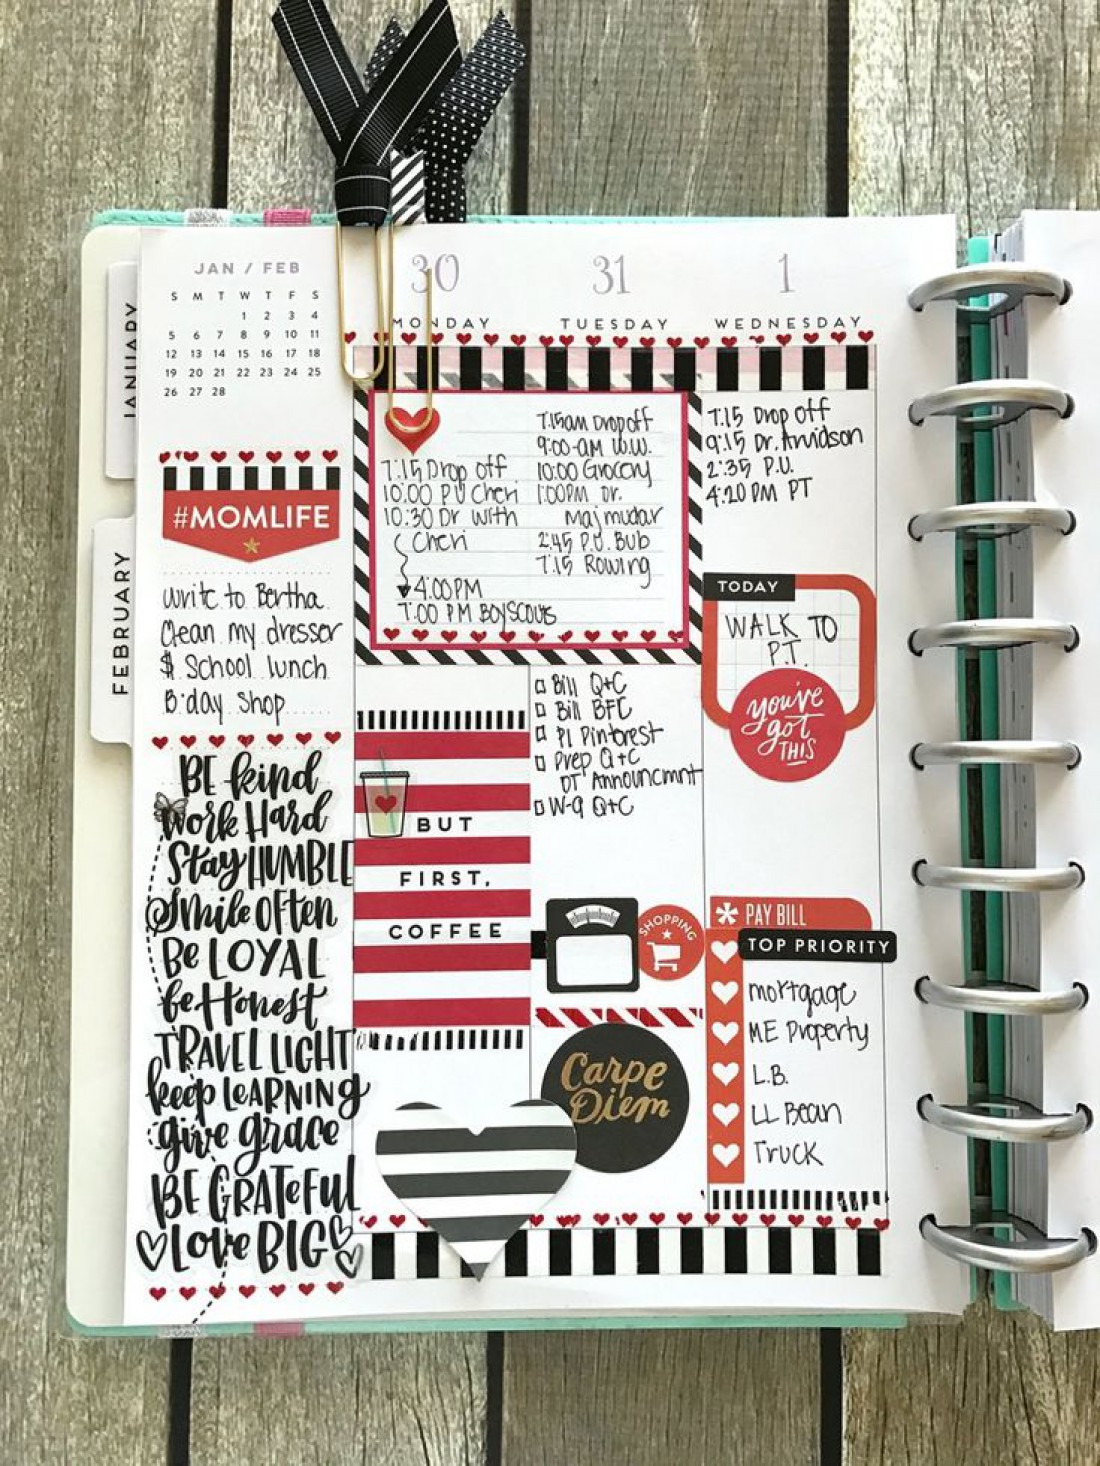 JANUARY
FEBRUARY
JAN / FEB
S M T W T F S
1 2 3 4
5 6 7 8 9 10 11
12 13 14 15 16 17 18
19 20 21 22 23 24 25
26 27 28
#MOMLIFE
write to Bertha
Clean my dresser
$ School lunch
B.day Shop
BE kind
Work Hard
Stay HUMBLE
Smile OFten
Be LOYAL
be Honest
TRAVEL LIGHT
keep LEARNING
give grace
BE GRATEFUL
Love BIG
30
MONDAY
7:15 Drop off
10:00 PU Cheri
10:30 Dr with
Cheri
4:00 PM
7:00 PM BOY SCOUts
BUT
FIRST,
COFFEE
31
TUESDAY
7:15am Drop off
9:00-AM W.W.
10:00 Grocery
1:00PM Dr.
Majmudar
2:45 P.U. Bub
7:15 Rowing
Bill Q+C
Bill BFC
P1 Pinterest
Prep Q+C
DT Announcmnt
W-9 Q+C
SHOPPING
Carpe
Diem
1
WEDNESDAY
7:15 Drop off
9:15 Dr. Arvidson
2:35 P.U.
4:20 PM PT
TODAY
WALK TO
P.T.
you've
got
THIS
PAY BILL
TOP PRIORITY
mortgage
ME Property
L.B.
LL Bean
Truck